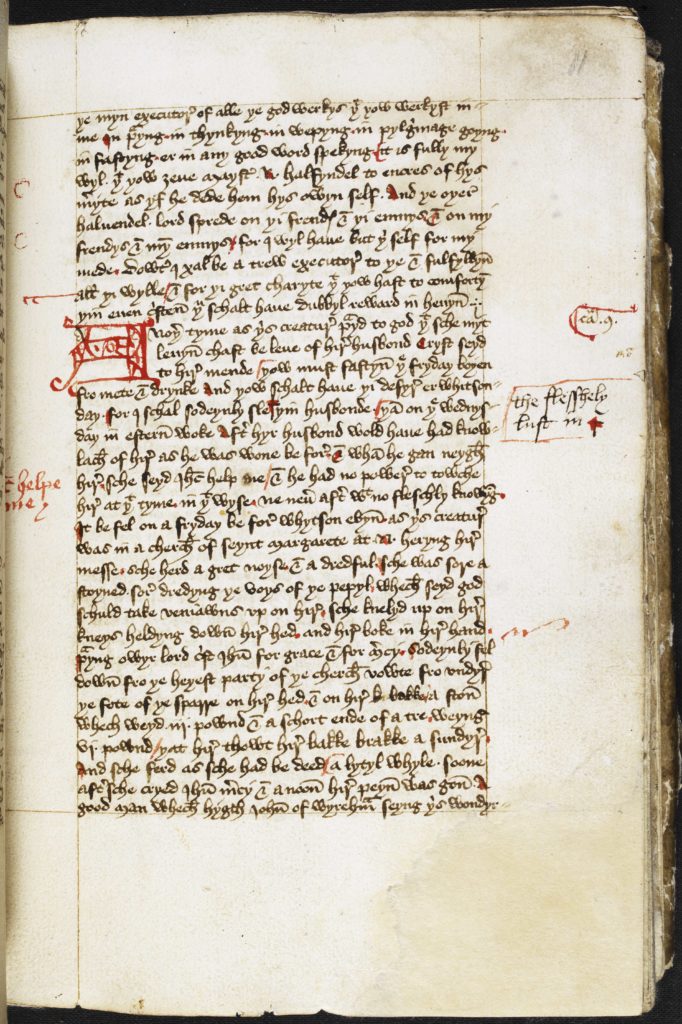 11
ye myn executor of alle ye god werkys yt yow werkyst in
me in p̄yng. in thynkyng. in wepyng. in pylgrimage goyng.
in fastyng. er in any good word spekyng. It is fully my
wyl. yt yow zeue Mayst. N. halfyndel to encres of hys
m̄yte as yf he dede hem hys owyn self. And ye oyer
haluendel. lord sprede on yi frendys & yi enmys & on my
frendys & myn enmys. for I wyl haue but yi self for my
mede. Dowtyr I xal be a trew executor to ye & fulfyllyn
all yi wylle. & for yi gret charyte yt yow hast to comfortyn
yin euen cristen yu schalt haue dubbyl reward in heuyn
A noyer tyme as yis creatur p̄yd to god yt sche myt
leuyn chast be leue of hir husbond. Cryst seyd
to hir mende. yow must fastyn ye fryday boyen
fro mete & drynke. And yow schalt haue yi desyr er whitson-
day. for I schal sodeynly sle yin husbonde. yan on ye wednys-
day in estern woke. aftyr hyr husbond wold haue had know-
lach of hir as he was wone be for. & whan he gan neygh
hir. sche seyd Ihs help me. & he had no power to towche
hir at yt tyme. in yt wyse. ne neuyr aftyr wt no fleschly knowyng.
It be fel on a fryday be for whytson euyn. as yis creatur
was in a cherch of seynt margarete at .N. heryng hir
messe. sche herd a gret noyse. & a dredful. sche was sore a
stoyned. sor dredyng ye voys of ye pepyl. whech seyd god
schuld take veniawns vp on hir. sche knelyd up on hir
kneys heldyng down hir hed. and hir boke in hir hand.
p̄yng owyr lord cryst Ihu for grace & for mercy. Sodeynly fel
down fro ye heyest party of ye cherch vowte fro vndyr
ye fote of ye sparre on hir hed. & on hir bakke. a ston
whech weyd .iij. pownd & a schort ende of a tre. weyng
vi. pownd. yat hir thowt hir bakke brakke a sundyr.
And sche ferd as sche had be deed. a lytyl whyle. Soone
aftyr sche cryed Ihu mercy & a noon hir peyn was gon. A
good man whech hygth John of wyreham seyng yis wondyr-
ca. 9.
the flesshely
lust in
helpe
me